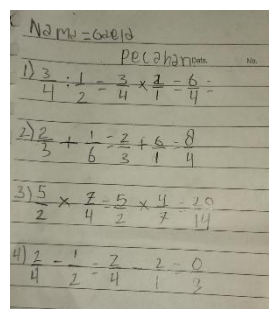 Name = Gaeld
Pecahan Date. No.
1) 3/4 : 1/2 = 3/4 × 2/1 = 6/4 =
2) 2/3 + 1/6 = 2/3 + 6/1 = 8/4
3) 5/2 × 7/4 = 5/2 × 4/7 = 20/14
4) 2/4 - 1/2 = 2/4 - 2/1 = 0/3